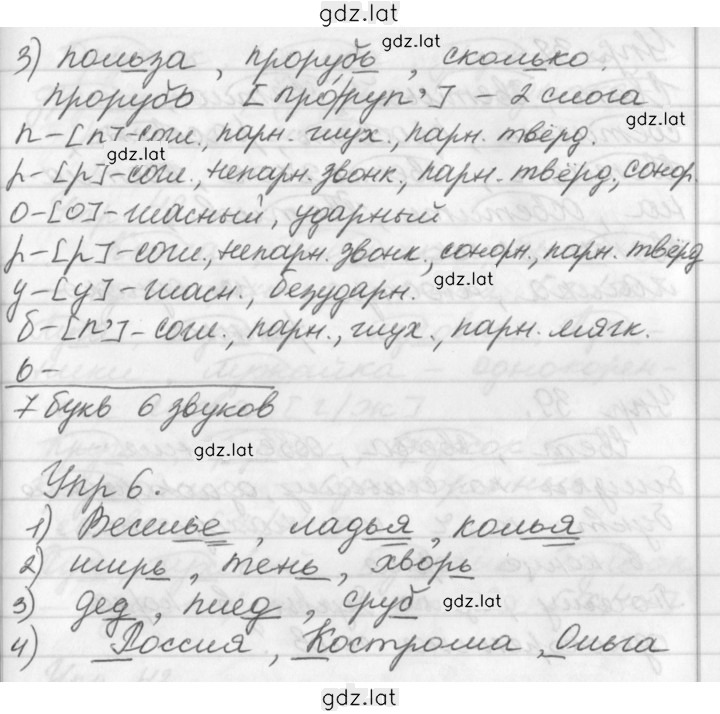 gdz.lat
3) польза, прорубь, сколько.
gdz.lat
прорубь [про/руп'] - 2 слога
gdz.lat
п-[п]-согл., парн. глух., парн. твёрд.
gdz.lat
р-[р]-согл., непарн. звонк., парн. твёрд, сонор.
о-[о]-гласный, ударный
р-[р]-согл., непарн. звонк., сонорн., парн. твёрд
gdz.lat
у-[у]-гласн., безударн.
б-[п']-согл., парн., глух., парн. мягк.
ь-
7 букв 6 звуков
gdz.lat
Упр 6.
1) Веселье, ладья, колья
2) ширь, тень, хворь
3) дед, плед, сруб
gdz.lat
4) Россия, Кострома, Ольга
gdz.lat